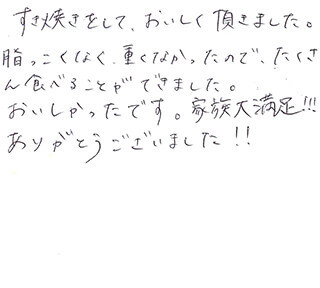 すき焼きをして、おいしく頂きました。
脂っこくなく、重くなかったので、たくさ
ん食べることができました。
おいしかったです。家族大満足!!!
ありがとうございました!!